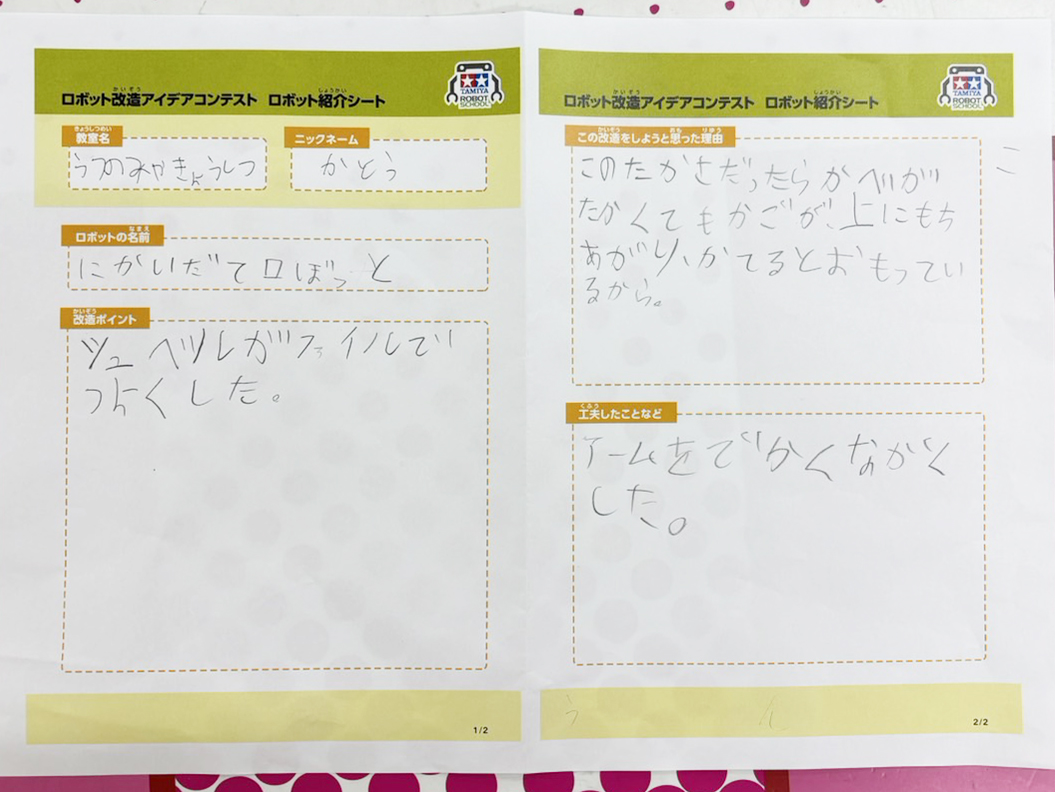 ロボット改造アイデアコンテスト ロボット紹介シート
TAMIYA
ROBOT
SCHOOL
教室名
うつのみやきょうしつ
ニックネーム
かとう
ロボットの名前
にかいだてロぼっと
改造ポイント
シュベルがファイルで
つよくした。
1/2
ロボット改造アイデアコンテスト ロボット紹介シート
TAMIYA
ROBOT
SCHOOL
この改造をしようと思った理由
このたかさだったらかべが
たかくてもかごが、上にもち
あがり、かてるとおもってい
るから。
工夫したことなど
アームをでかくながく
した。
2/2